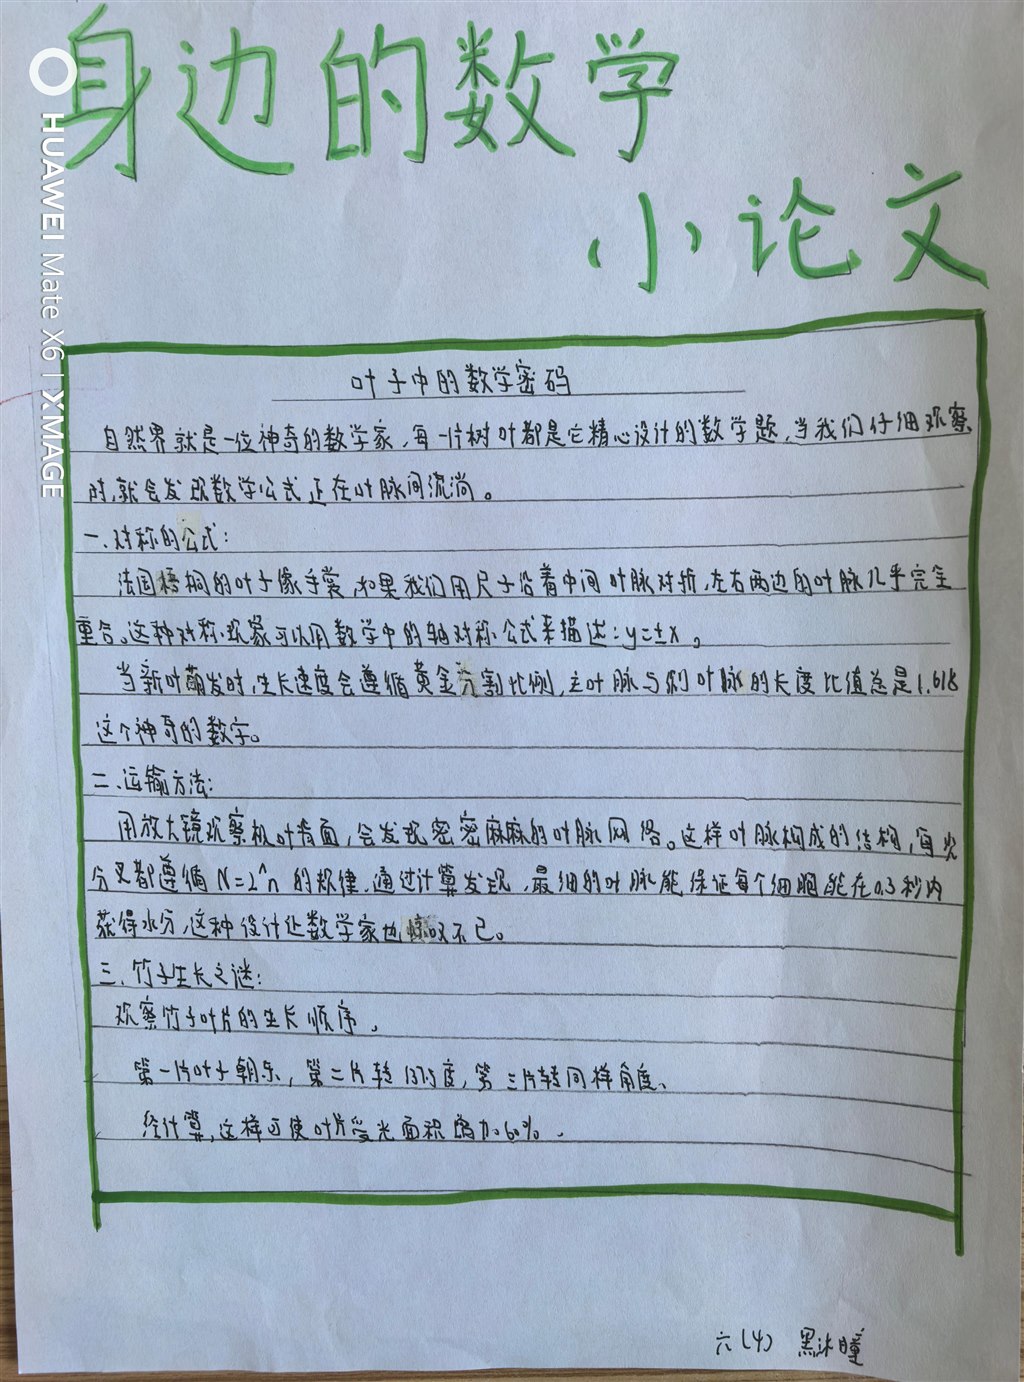 身边的数学
小论文
HUAWEI Mate X6 | XMAGE
叶子中的数学密码
自然界就是一位神奇的数学家,每一片树叶都是它精心设计的数学题,当我们仔细观察
时,就会发现数学公式正在叶脉间流淌。
一、对称的公式:
法国梧桐的叶子像手掌,如果我们用尺子沿着中间叶脉对折,左右两边的叶脉几乎完全
重合。这种对称现象可以用数学中的轴对称公式来描述:y=±x。
当新叶萌发时,生长速度会遵循黄金分割比例,主叶脉与侧叶脉的长度比值总是1.618
这个神奇的数字。
二、运输方法:
用放大镜观察枫叶背面,会发现密密麻麻的叶脉网络。这样叶脉构成的结构,每次
分叉都遵循N=2^n的规律,通过计算发现,最细的叶脉能保证每个细胞能在0.3秒内
获得水分,这种设计让数学家也惊叹不已。
三、竹子生长之谜:
观察竹子叶片的生长顺序,
第一片叶子朝东,第二片转137.5度,第三片转同样角度、
经计算,这样可使叶片受光面积增加60%.
六(4) 黑沐瞳